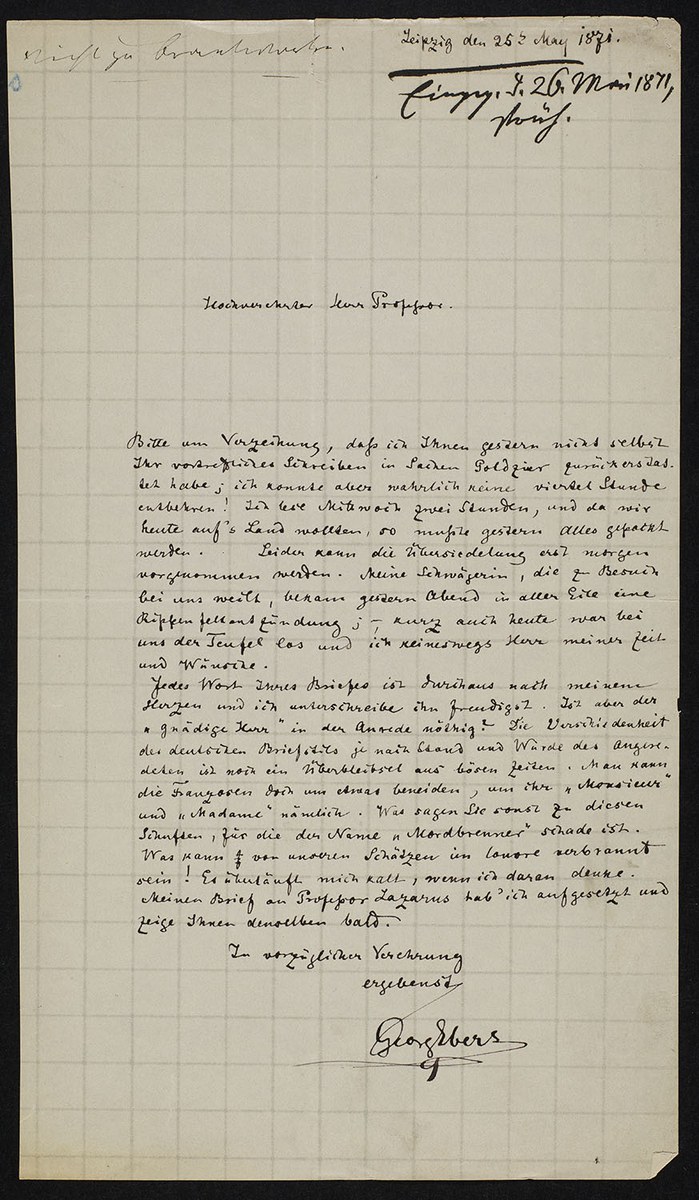 Nicht zu beantworten.
Leipzig den 25t May 1871.
Eingeg. d. 26. Mai 1871,
früh.
Hochverehrter Herr Professor.
Bitte um Verzeihung, daß ich Ihnen gestern nicht selbst
Ihr vortreffliches Schreiben in Sachen Goldziher zurückerstat-
tet habe; ich konnte aber wahrlich keine viertel Stunde
entbehren! Ich lese Mittwoch zwei Stunden, und da wir
heute auf's Land wollten, so mußte gestern Alles gepackt
werden. Leider kann die Übersiedelung erst morgen
vorgenommen werden. Meine Schwägerin, die z Besuch
bei uns weilt, bekam gestern Abend in aller Eile eine
Rippenfellentzündung; – kurz auch heute war bei
uns der Teufel los und ich keineswegs Herr meiner Zeit
und Wünsche.
Jedes Wort Ihres Briefes ist durchaus nach meinem
Herzen und ich unterschreibe ihn freudigst. Ist aber der
„gnädige Herr" in der Anrede nöthig? Die Verschiedenheit
des deutschen Briefstils je nach Stand und Würde des Angere-
deten ist noch ein Überbleibsel aus bösen Zeiten. Man kann
die Franzosen doch um etwas beneiden, um ihr „Monsieur"
und „Madame" nämlich. Was sagen Sie sonst zu diesen
Schuften, für die der Name „Mordbrenner" schade ist.
Was kann von unseren Schätzen im Louvre verbrannt
sein! Es überläuft mich kalt, wenn ich daran denke.
Meinen Brief an Professor Lazarus hab' ich aufgesetzt und
zeige Ihnen denselben bald.
In vorzüglicher Verehrung
ergebenst
Georg Ebers